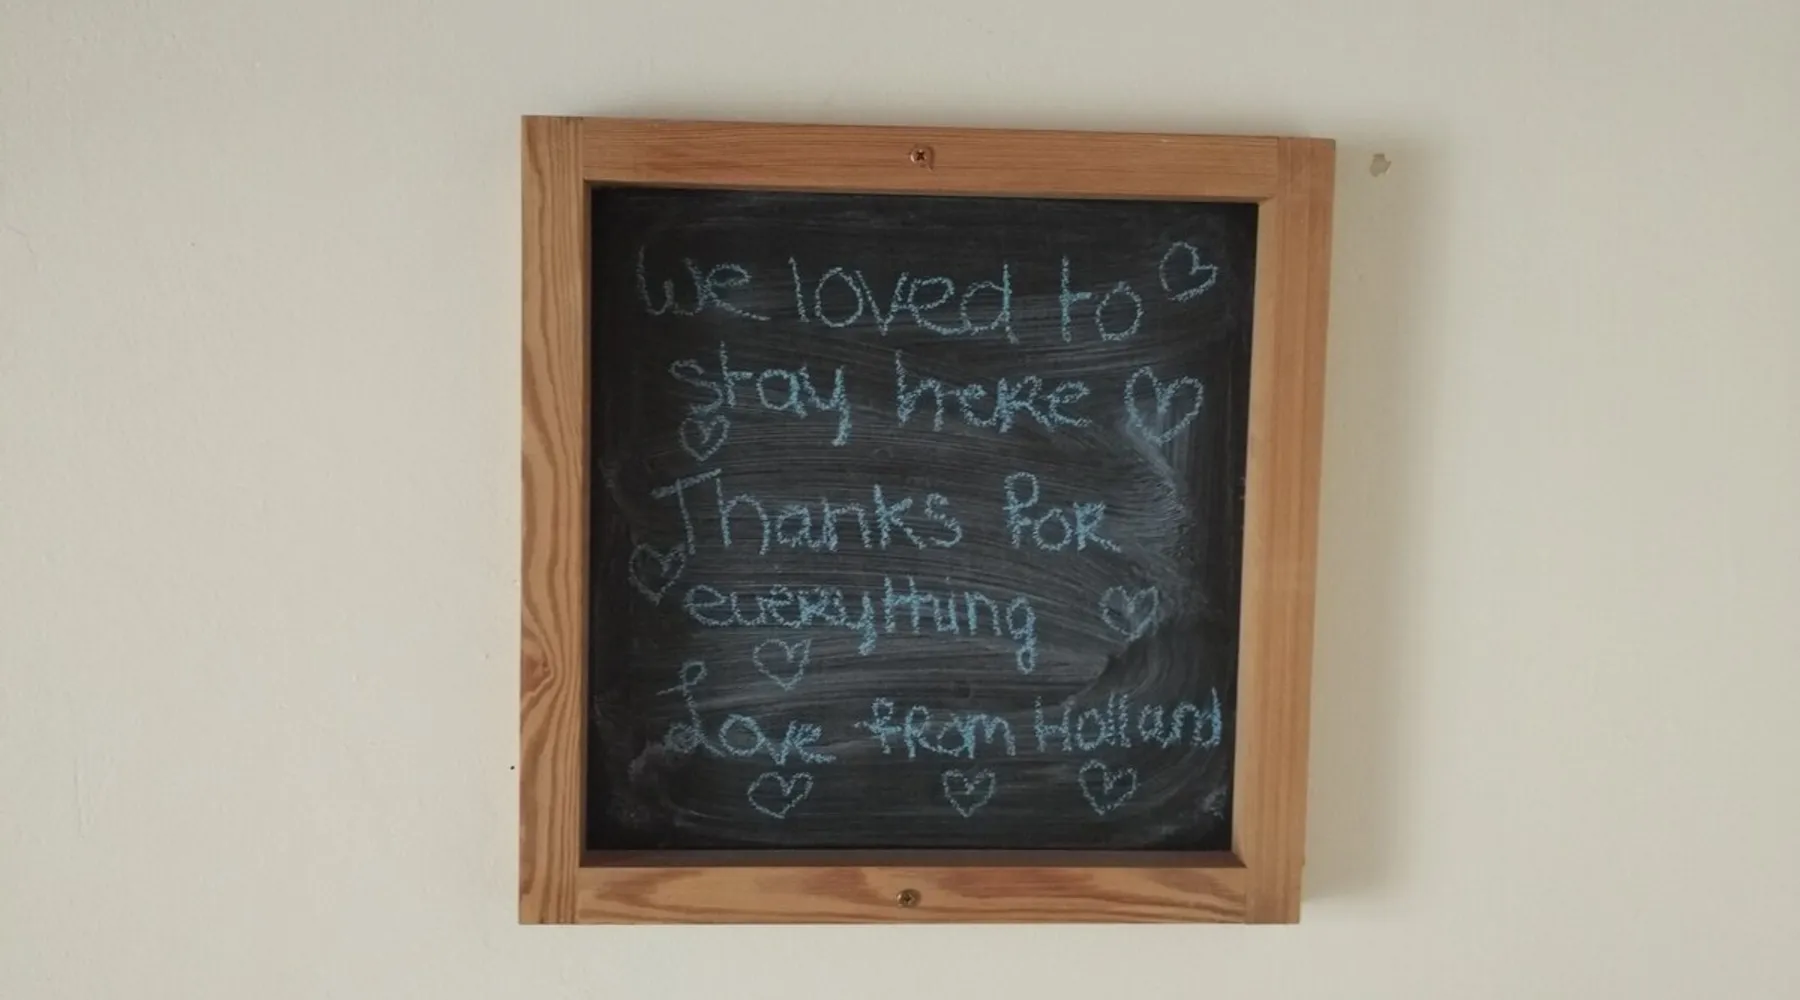 We loved to
stay here
Thanks for
everything
Love from Holland